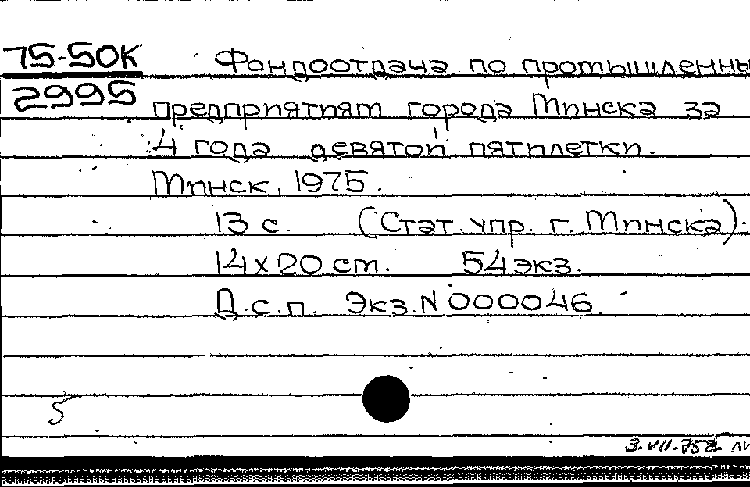 75-50К Фондоотдача по промышленны
2995 предприятиям города Минска за
4 года девятой пятилетки.
Минск, 1975.
13 с. (Стат. упр. г. Минска).
14х20 см. 54 экз.
Д.с.п. Экз. N 000046.
5
3.VII.75г.